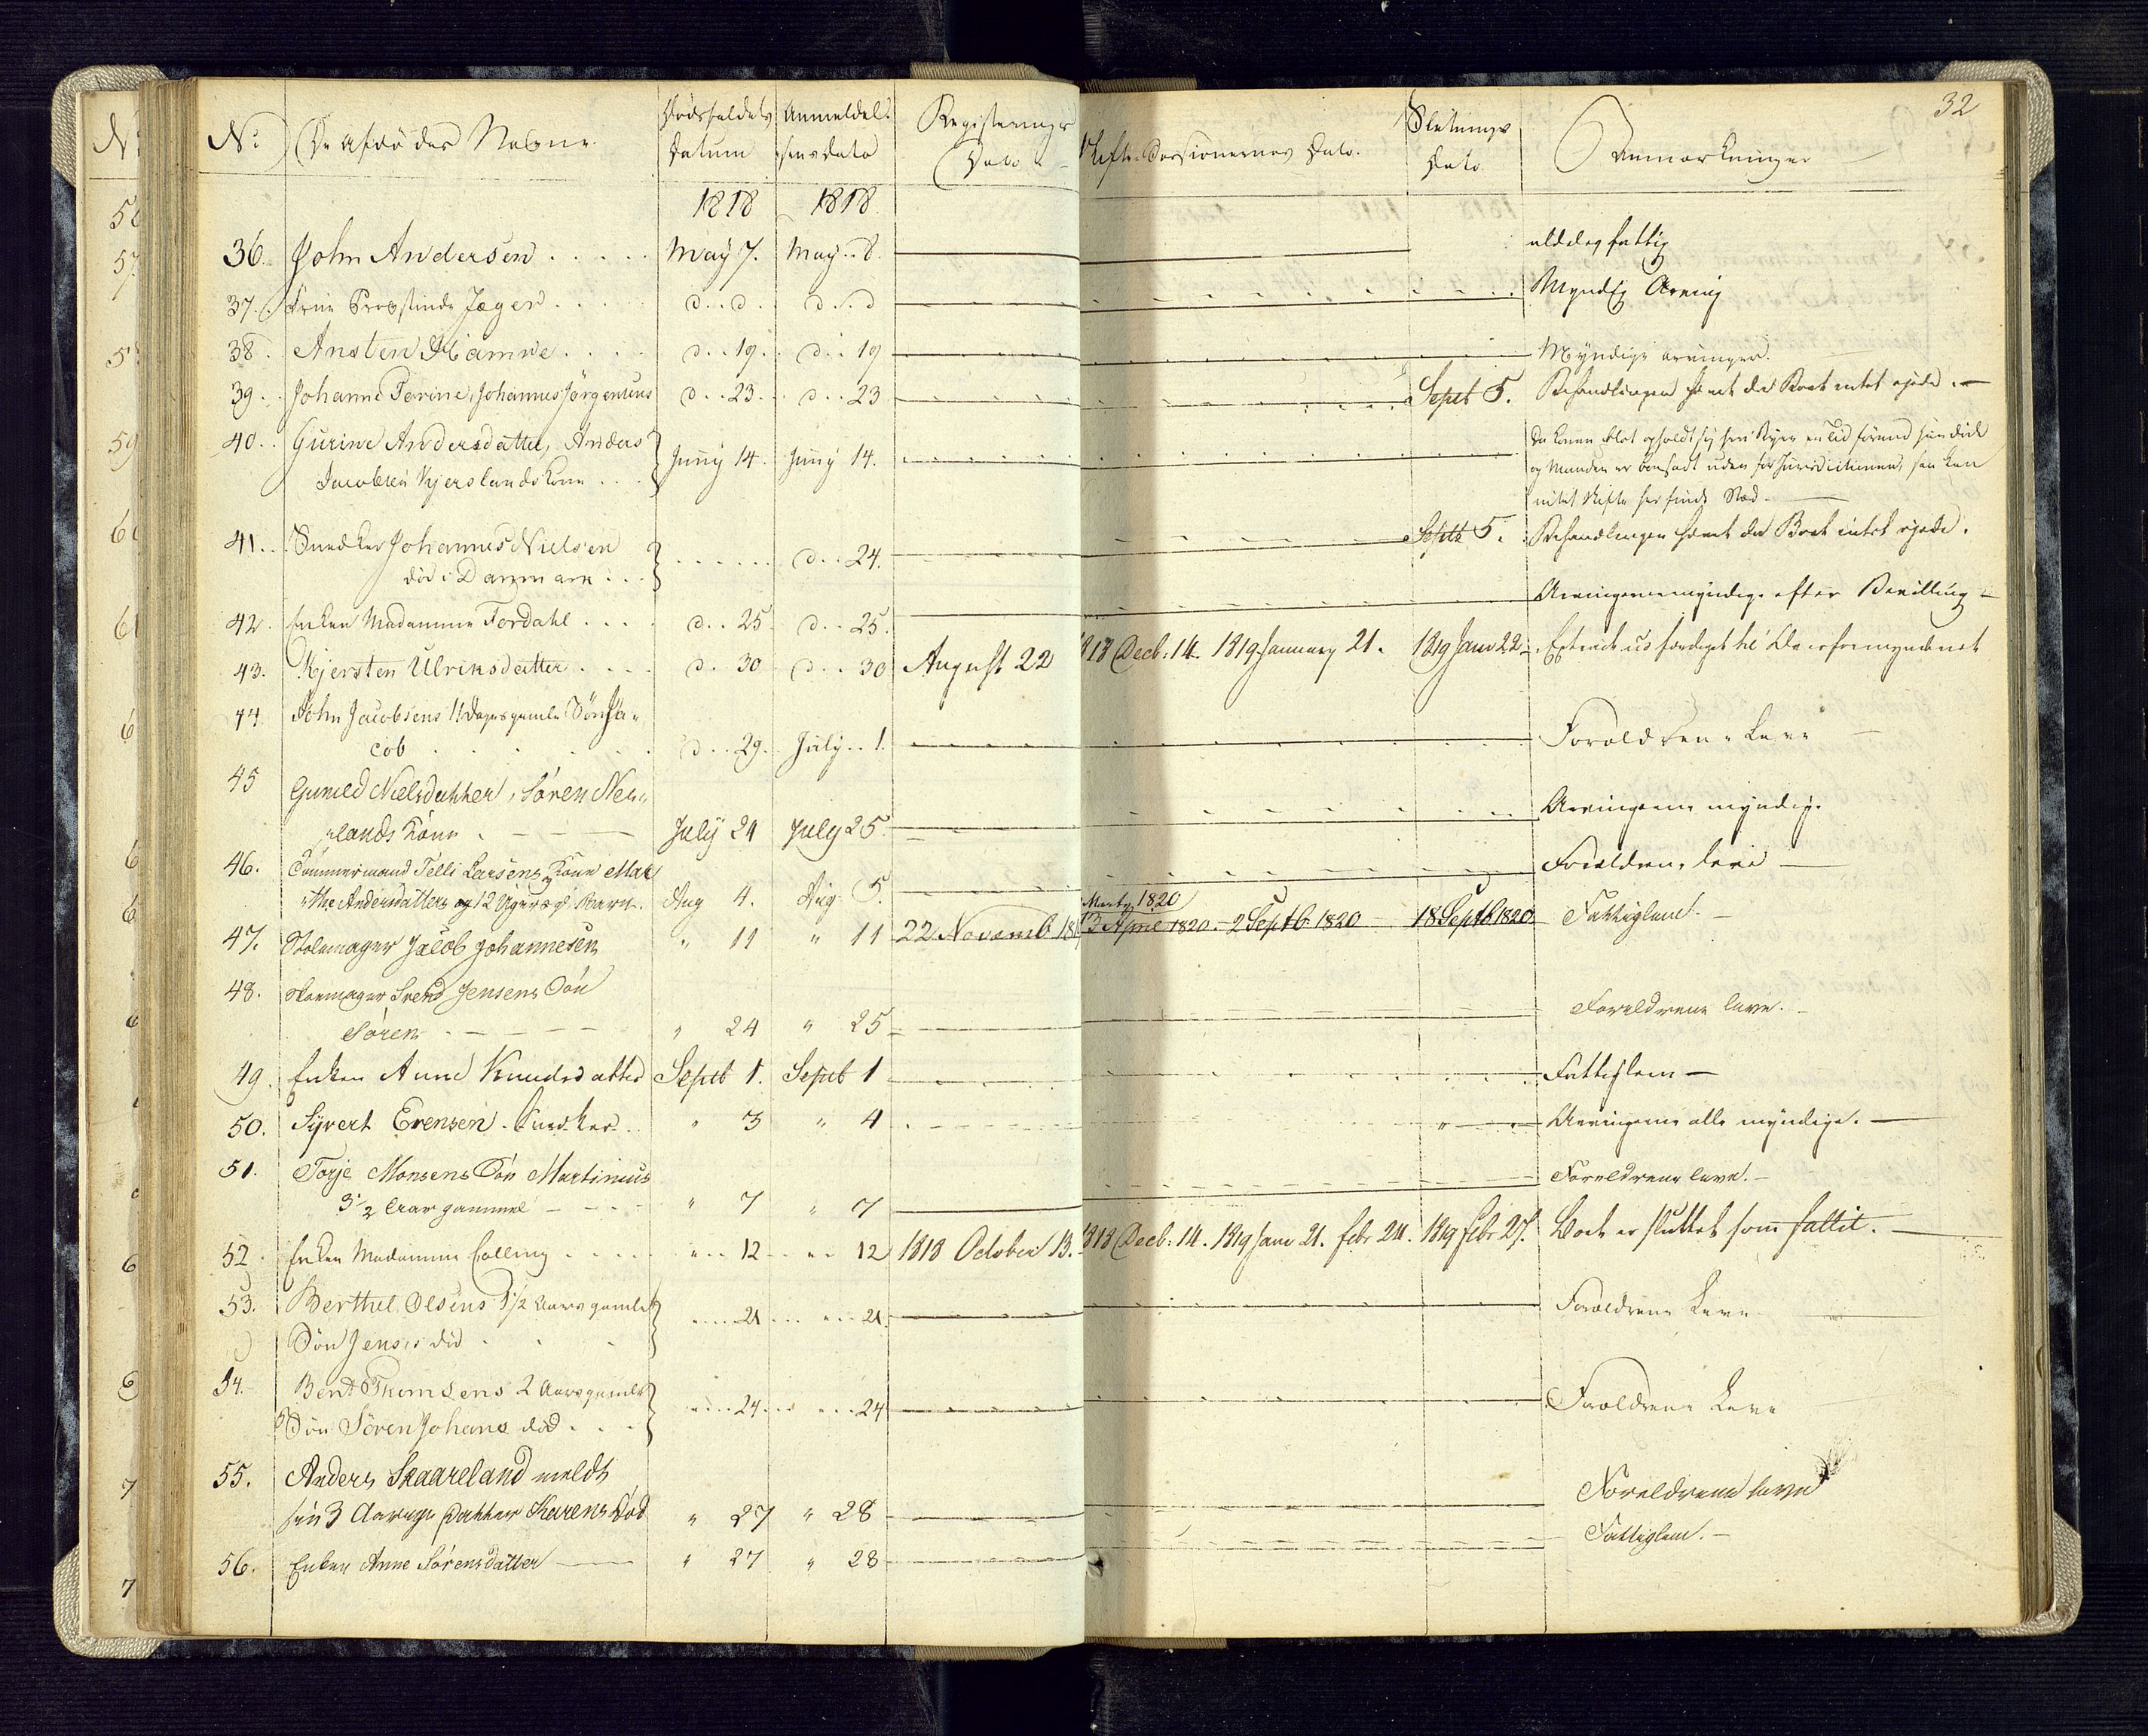 32
No De Afdødes Navne Dødsfaldets Datum Anmeldelsens Dato Registerings Dato Skifte Sessionernes Dato. Slutnings Dato. Anmærkninger
1818 1818.
36. John Andersen . . . . . May 7. May . . 8. aldeles fattig
37. Jæger . . . . d . . d . d . . d Myndig Arving
38. Ansten Hamre . . . . d . . 19. d . . 19 Myndige arvinger.
39. Johanne Torine, Johannes Jörgensens d . . 23. d . . 23 Septb 5. Behandlingen hævet da Boet intet ejede. —
40. Gurine Andersdatter, Anders
Jacobsen Kjerslands Kone . . Juny 14. Juny 14. Da Konen blot opholdt sig her i Byen en Tid førend hun døde
og Manden er bosadt uden for Jurisdictionen, saa kan
intet Skifte her finde Sted. —
41. Snedker Johannes Nielsen
död i Danmark . . . . . . . . d . . 24. Septb 5. Behandlingen hævet da Boet intet ejede.
42. Enken Madamme Fordahl . . . . d . . 25 d . . 25. Arvingerne myndige efter Bevilling —
43. Kjersten Ulriksdatter . . . . d . 30 d . . 30 August 22 1818 Decb. 14. 1819 January 21. 1819 Janu 22. Extract udfærdiget til Overformynderiet
44. John Jacobsens 11 Dages gamle Sön Ja„
cob . . . . . d . . 29. July . . 1. Forældrene Leve —
45 Guneld Nielsdatter, Sören Nes„
„lands Kone . — — July 24 July 25. Arvingerne myndige.
46. Tömmermand Telli Larsens Kone Mar„
„the Andersdatters og 12 Ugers gl. Barn. Aug 4. Aug 5. Forældrene leve —
47. Stolemager Jacob Johannesen „ 11 „ 11 22 Novemb 181 Marty 1820
13 April 1820 — 2 Septb 1820 — 18 Septb 1820 Fattiglem. —
48. Skoemager Svend Jensens Sön
Sören — — — „ 24 „ 25 Foreldrene leve.
49. Enken Anne Knudsdatter Septb 1. Septb 1 Fattiglem —
50. Syvert Evensen. Snedker. „ 3 „ 4 Arvingerne alle myndige. —
51. Torje Monsens Sön Martinius
3½ Aar gammel — — „ 7 „ 7 Foreldrene leve. —
52. Enken Madamme Colling . . . . „ . . 12 „ . . 12 1818 October 13. 1818 Decb. 14. 1819 Janu 21. Febr 24. 1819 Febr 27. Boet er sluttet som fallit. —
53. Berthel Olsens 1½ Aars gamle
Sön Jens's död . . . „ . . 21 . . „ . . 21. Forældrene Leve
54. Bent Thomsens 2 Aars gamle
Sön Sören Johans död . . . „ . . 24 . . „ . . 24 Forældrene Leve
55. Anders Skaareland meldt
sin 3 Aarige Datter Karens Död „ 27 „ 28 Foreldrene leve
56. Enken Anne Sörensdatter — „ 27 „ 28 Fattiglem. —